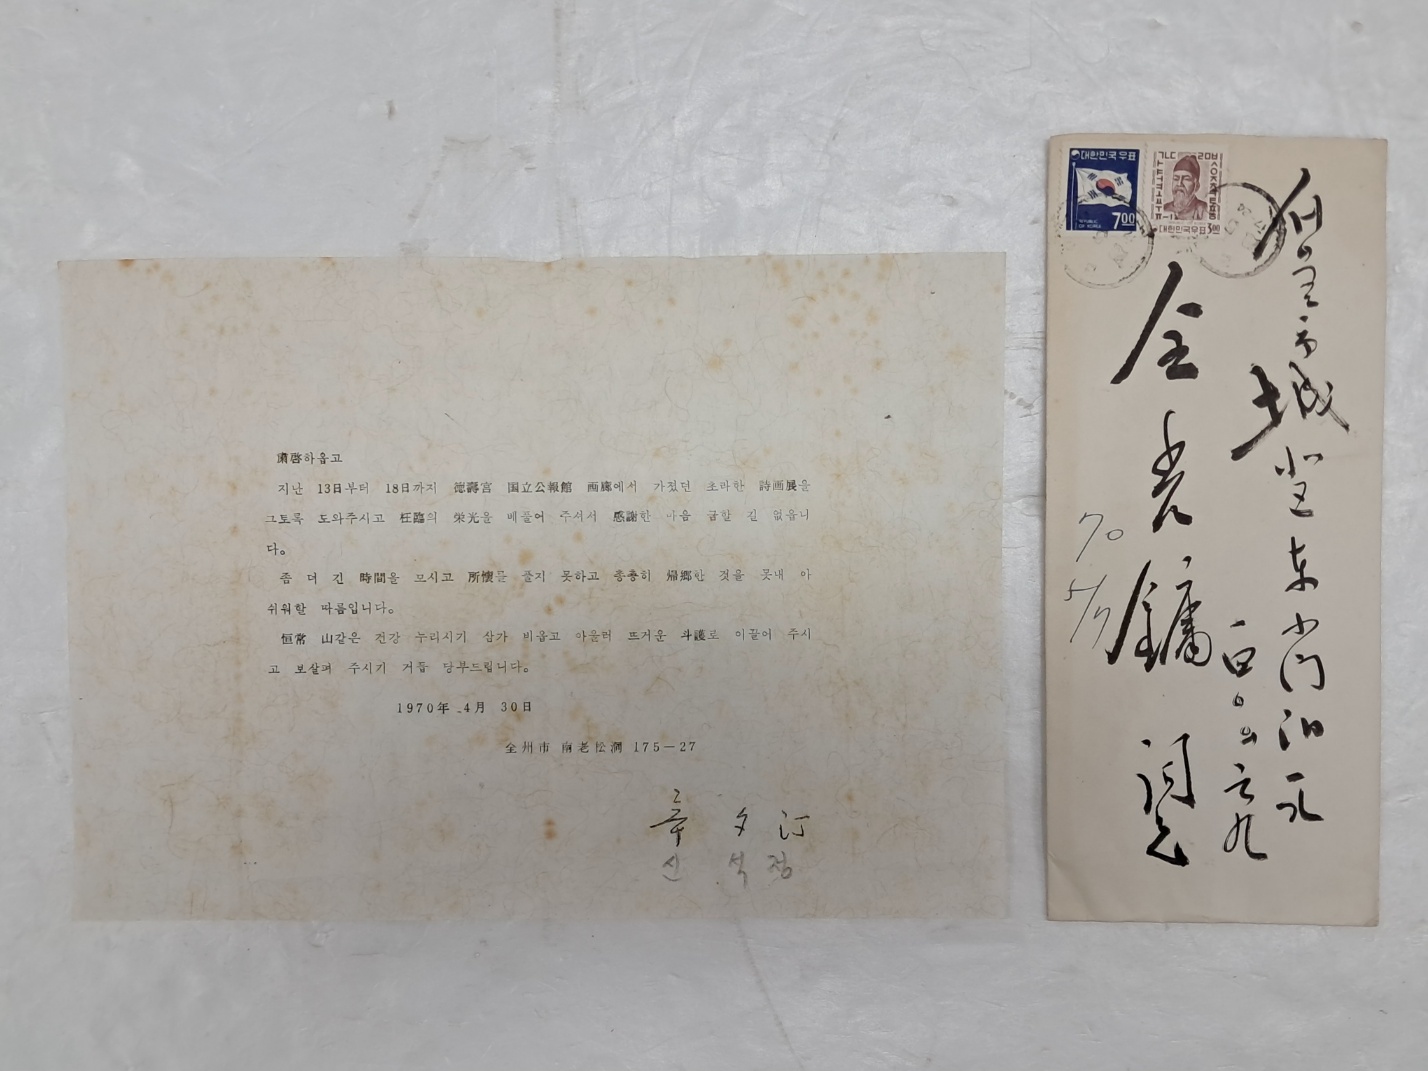 肅啓하옵고
지난 13日부터 18日까지 德壽宮 国立公報館 画廊에서 가졌던 초라한 詩画展을
그토록 도와주시고 枉臨의 栄光을 베풀어 주셔서 感謝한 마음 금할 길 없읍니
다。
좀 더 긴 時間을 모시고 所懷를 풀지 못하고 총총히 帰郷한 것을 못내 아
쉬워할 따름입니다。
恒常 山같은 건강 누리시기 삼가 비옵고 아울러 뜨거운 斗護로 이끌어 주시
고 보살펴 주시기 거듭 당부드립니다。
1970年 4月 30日
全州市 南老松洞 175—27
夕汀
신 석 정
대한민국우표
REPUBLIC OF KOREA
7 00
대한민국우표 3원
全州市 城
東
小門
全 鏞
70
5/7